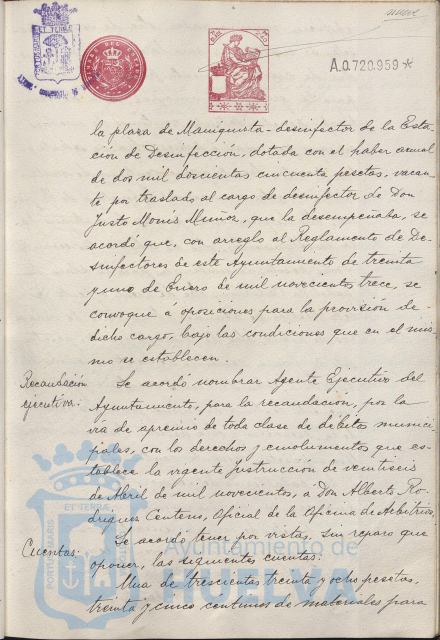 nueve
A.0.720.959*
la plaza de Maniquista-desinfector de la Esta-
ción de Desinfección, dotada con el haber anual
de dos mil doscientas cincuenta pesetas, vacan-
te por traslado al cargo de desinfector de Don
Justo Monís Muñoz, que la desempeñaba, se
acordó que, con arreglo al Reglamento de De-
sinfectores de este Ayuntamiento de treinta
y uno de Enero de mil novecientos trece, se
convoque a oposiciones para la provisión de
dicho cargo, bajo las condiciones que en el mis-
mo se establecen.
Recaudación
ejecutiva:
Se acordó nombrar Agente Ejecutivo del
Ayuntamiento, para la recaudación, por la
vía de apremio de toda clase de débitos munici-
pales, con los derechos y emolumentos que es-
tablece la vigente Instrucción de veintiseis
de Abril de mil novecientos, a Don Alberto Ro-
dríguez Centeno, Oficial de la Oficina de Arbitrios.
Cuentas:
Se acordó tener por vistas, sin reparo que
oponer, las siguientes cuentas:
Una de trescientas treinta y ocho pesetas,
treinta y cinco céntimos de materiales para
PORTUS MARIS ET TERRÆ
Ayuntamiento de
HUELVA